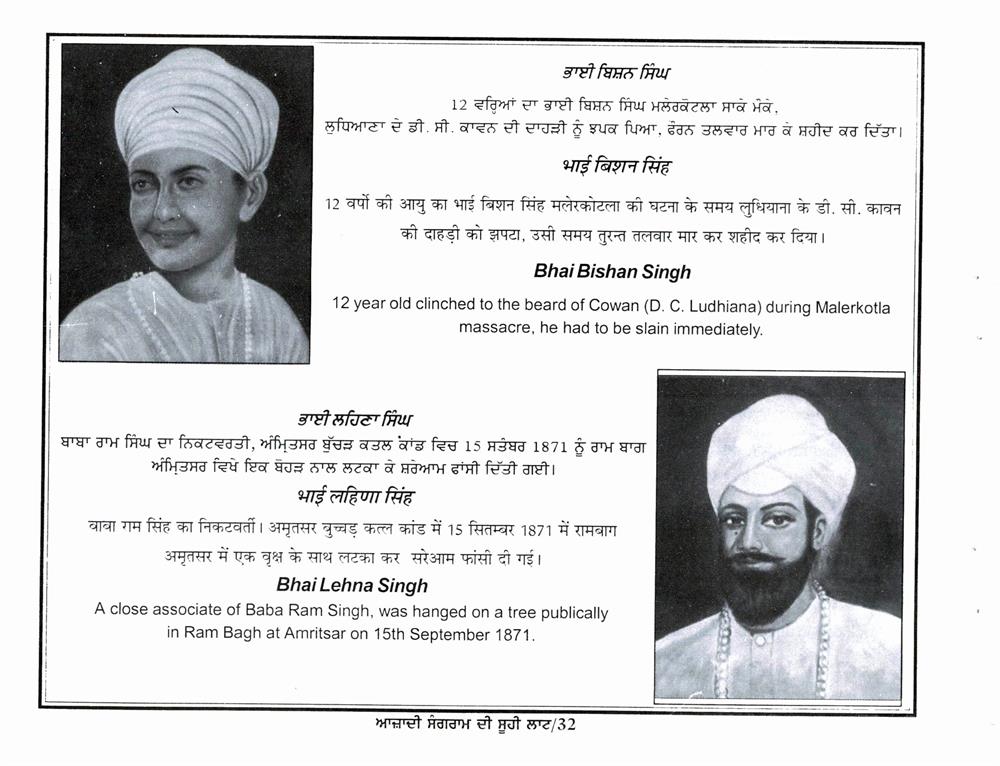 ਭਾਈ ਬਿਸ਼ਨ ਸਿੰਘ
12 ਵਰ੍ਹਿਆਂ ਦਾ ਭਾਈ ਬਿਸ਼ਨ ਸਿੰਘ ਮਲੇਰਕੋਟਲਾ ਸਾਕੇ ਮੌਕੇ,
ਲੁਧਿਆਣਾ ਦੇ ਡੀ. ਸੀ. ਕਾਵਨ ਦੀ ਦਾਹੜੀ ਨੂੰ ਝਪਕ ਪਿਆ, ਫੌਰਨ ਤਲਵਾਰ ਮਾਰ ਕੇ ਸ਼ਹੀਦ ਕਰ ਦਿੱਤਾ।
भाई बिशन सिंह
12 वर्षो की आयु का भाई बिशन सिंह मलेरकोटला की घटना के समय लुधियाना के डी. सी. कावन
की दाहड़ी को झपटा, उसी समय तुरन्त तलवार मार कर शहीद कर दिया।
Bhai Bishan Singh
12 year old clinched to the beard of Cowan (D. C. Ludhiana) during Malerkotla
massacre, he had to be slain immediately.
ਭਾਈ ਲਹਿਣਾ ਸਿੰਘ
ਬਾਬਾ ਰਾਮ ਸਿੰਘ ਦਾ ਨਿਕਟਵਰਤੀ, ਅੰਮ੍ਰਿਤਸਰ ਬੁੱਚੜ ਕਤਲ ਕਾਂਡ ਵਿਚ 15 ਸਤੰਬਰ 1871 ਨੂੰ ਰਾਮ ਬਾਗ
ਅੰਮ੍ਰਿਤਸਰ ਵਿਖੇ ਇਕ ਬੋਹੜ ਨਾਲ ਲਟਕਾ ਕੇ ਸ਼ਰੇਆਮ ਫਾਂਸੀ ਦਿੱਤੀ ਗਈ।
भाई लहिणा सिंह
बाबा राम सिंह का निकटवर्ती। अमृतसर बुच्चड़ कत्ल कांड में 15 सितम्बर 1871 में रामबाग
अमृतसर में एक वृक्ष के साथ लटका कर सरेआम फांसी दी गई।
Bhai Lehna Singh
A close associate of Baba Ram Singh, was hanged on a tree publically
in Ram Bagh at Amritsar on 15th September 1871.
ਆਜ਼ਾਦੀ ਸੰਗਰਾਮ ਦੀ ਸੂਹੀ ਲਾਟ/32